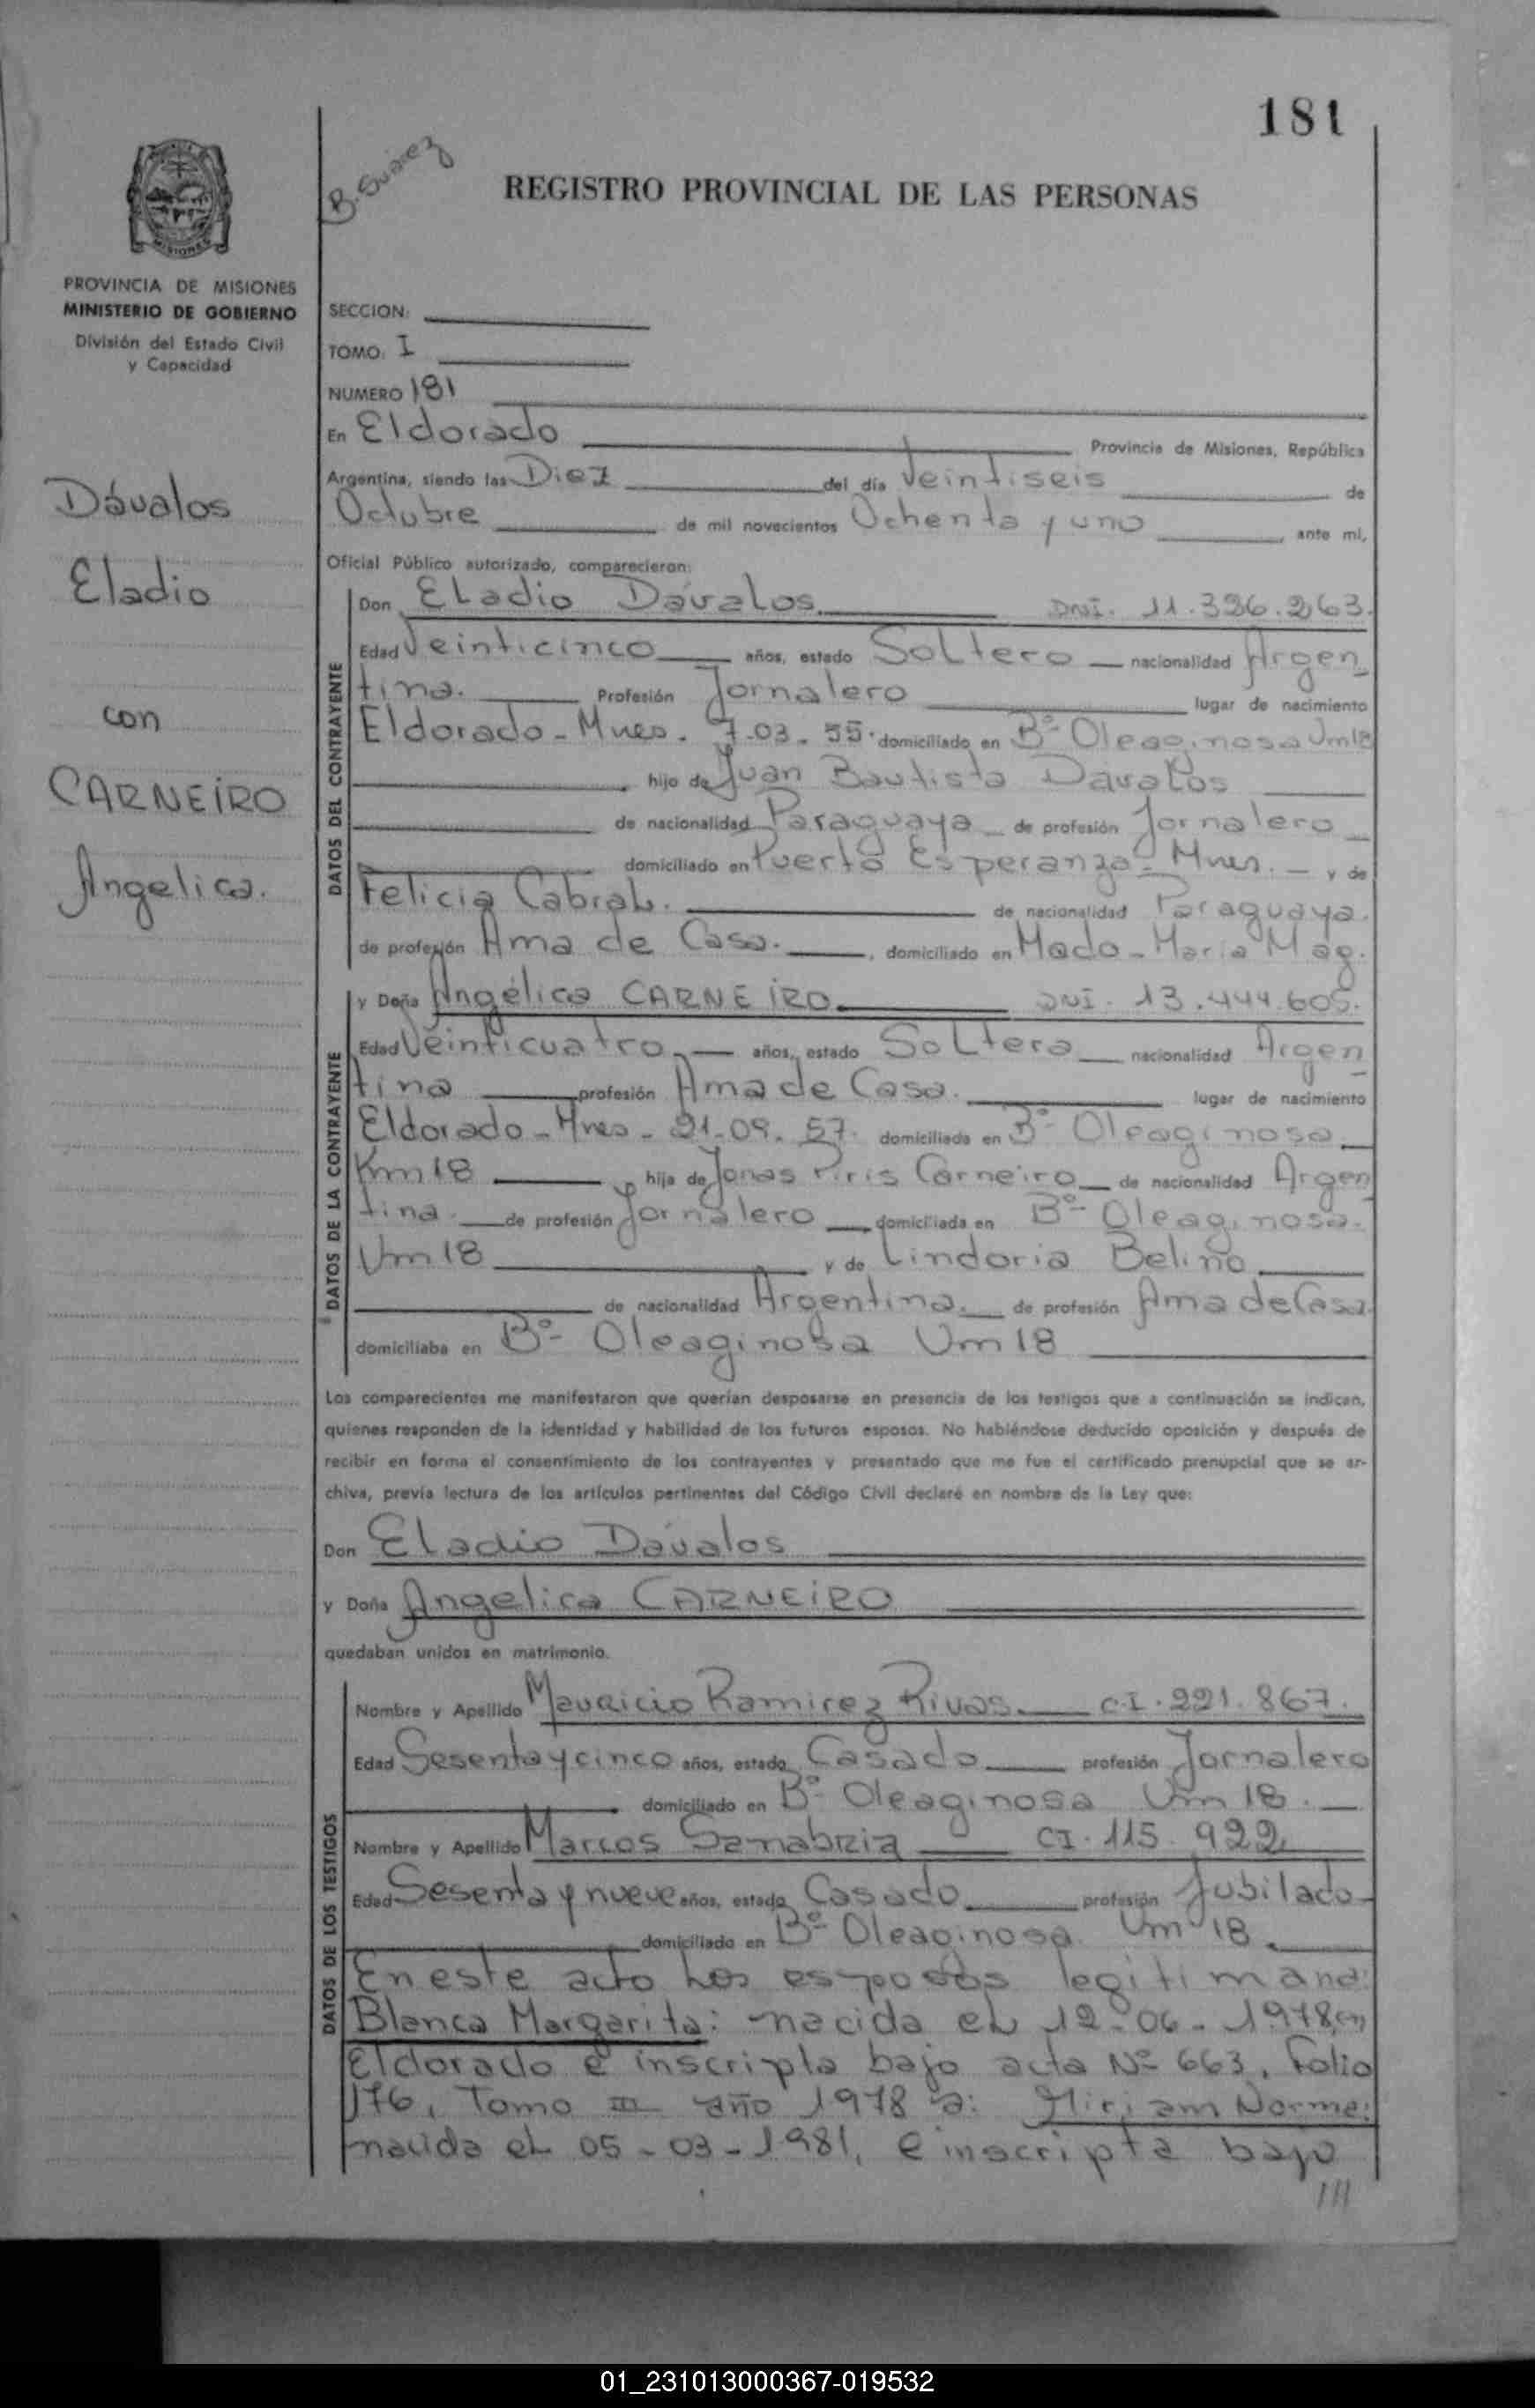 181
B. Suarez
REGISTRO PROVINCIAL DE LAS PERSONAS
MISIONES
PROVINCIA DE MISIONES
MINISTERIO DE GOBIERNO
División del Estado Civil
y Capacidad
Dávalos
Eladio
con
CARNEIRO
Angelica.
SECCION:
TOMO: I
NUMERO 181
En Eldorado Provincia de Misiones, República
Argentina, siendo las Diez del día Veintiseis de
Octubre de mil novecientos Ochenta y uno ante mí,
Oficial Público autorizado, comparecieron:
DATOS DEL CONTRAYENTE
Don Eladio Dávalos DNI. 11.326.263.
Edad Veinticinco años, estado Soltero nacionalidad Argen
tina. Profesión Jornalero lugar de nacimiento
Eldorado - Mnes. 7-03-55. domiciliado en Bº Oleaginosa Km18
hijo de Juan Bautista Davalos
de nacionalidad Paraguaya de profesión Jornalero
domiciliado en Puerto Esperanza - Mnes. y de
Felicia Cabral. de nacionalidad Paraguaya.
de profesión Ama de Casa. , domiciliado en Mado - Maria Mag.
DATOS DE LA CONTRAYENTE
y Doña Angélica CARNEIRO DNI. 13.444.605.
Edad Veinticuatro años, estado Soltera nacionalidad Argen
tina profesión Ama de Casa. lugar de nacimiento
Eldorado - Mnes - 21-09-57. domiciliada en Bº Oleaginosa
Km18 hija de Jonas Piris Carneiro de nacionalidad Argen
tina. de profesión Jornalero domiciliada en Bº Oleaginosa.
Km18 y de Lindoria Belino
de nacionalidad Argentina. de profesión Ama de Casa.
domiciliaba en Bº Oleaginosa Km18
Los comparecientes me manifestaron que querían desposarse en presencia de los testigos que a continuación se indican,
quienes responden de la identidad y habilidad de los futuros esposos. No habiéndose deducido oposición y después de
recibir en forma el consentimiento de los contrayentes y presentado que me fue el certificado prenupcial que se ar-
chiva, previa lectura de los artículos pertinentes del Código Civil declaré en nombre de la Ley que:
Don Eladio Dávalos
y Doña Angelica CARNEIRO
quedaban unidos en matrimonio.
DATOS DE LOS TESTIGOS
Nombre y Apellido Mauricio Ramirez Rivas. C.I. 221.867.
Edad Sesenta y cinco años, estado Casado profesión Jornalero
domiciliado en Bº Oleaginosa Km 18.
Nombre y Apellido Marcos Sanabria CI. 115.922
Edad Sesenta y nueve años, estado Casado profesión Jubilado
domiciliado en Bº Oleaginosa. Km 18.
En este acto los esposos legitiman a:
Blanca Margarita: nacida el 12-06-1978, en
Eldorado e inscripta bajo acta Nº 663, Folio
176, Tomo III año 1978 a: Miriam Norma:
nacida el 05-03-1981, e inscripta bajo
///
01_231013000367-019532